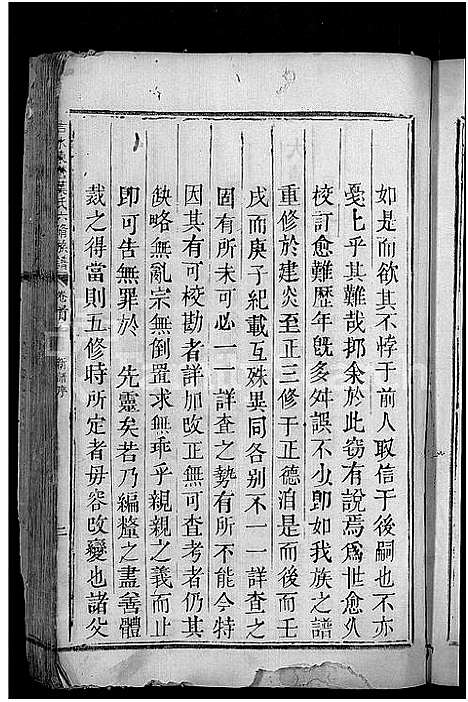 如是而欲其不悖于前人取信于後嗣也不亦
戞乚乎其難哉抑余於此窃有說焉爲世愈久
校訂愈難歷年旣多舛誤不少卽如我族之譜
重修於建炎至正三修于正德洎是而後而壬
戌而庚子紀載互殊異同各别不一一詳查之
固有所未可必一一詳查之勢有所不能今特
因其有可校勘者詳加改正無可查考者仍其
缺略無亂宗無倒置求無乖乎親親之義而止
卽可告無罪於　先靈矣若乃編釐之盡善體
裁之得當則五修時所定者毋容改變也諸父
氏六脩族譜
卷首
新譜序
三